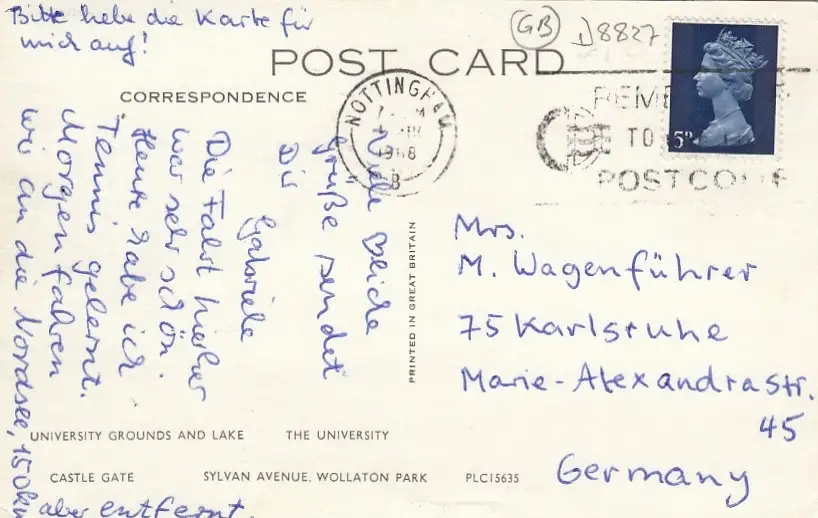 Bitte hebe die Karte für
mich auf!
GB
D8827
POST CARD
CORRESPONDENCE
NOTTINGHAM
1968
REMEMBER
TO
POSTCODE
5D
Viele
Grüße sendet
Dir
Gabriele
Die Fahrt hierher
war sehr schön.
Heute habe ich
Tennis gelernt.
Morgen fahren
wir an die Nordsee, 150km
aber entfernt.
PRINTED IN GREAT BRITAIN
Mrs.
M. Wagenführer
75 Karlsruhe
Marie-Alexandrastr.
45
Germany
UNIVERSITY GROUNDS AND LAKE THE UNIVERSITY
CASTLE GATE SYLVAN AVENUE, WOLLATON PARK PLC15635